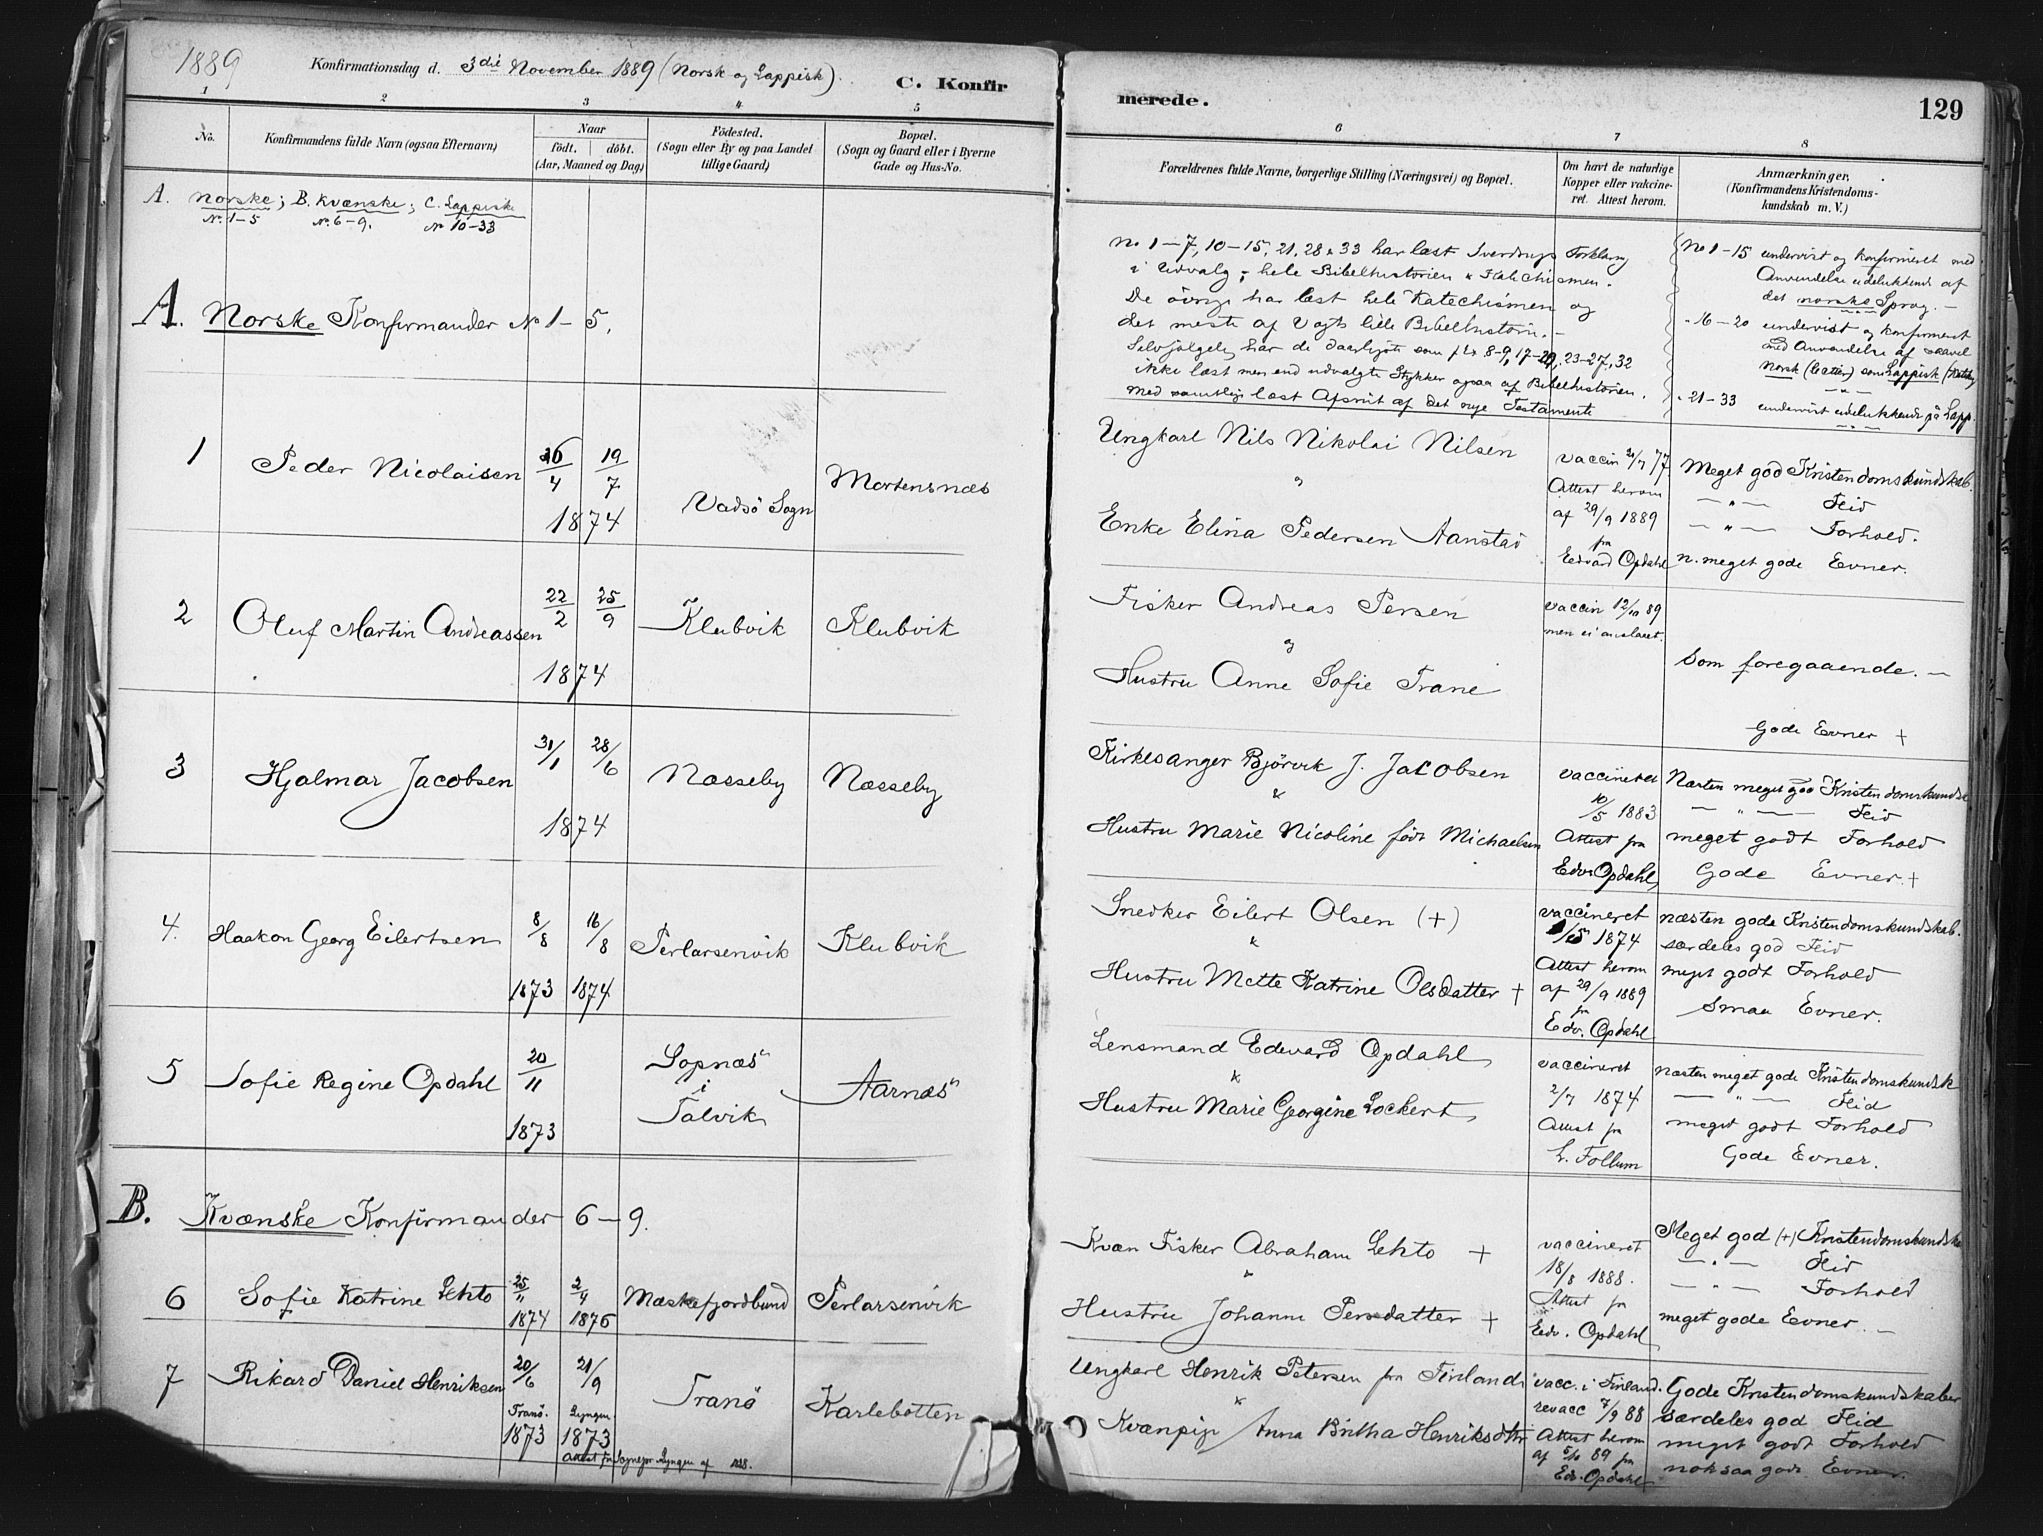 1889
Konfirmationsdag d. 3die November 1889 (Norsk og Lappisk)
C. Konfir
merede.
129
1 2 3 4 5
6 7 8
No.
Konfirmandens fulde Navn (ogsaa Efternavn)
Naar
födt. döbt.
(Aar, Maaned og Dag)
Födested.
(Sogn eller By og paa Landet
tillige Gaard)
Bopæl.
(Sogn og Gaard eller i Byerne
Gade og Hus-No.
Forældrenes fulde Navne, borgerlige Stilling (Næringsvei) og Bopæl.
Om havt de naturlige
Kopper eller vaccine-
ret. Attest herom.
Anmærkninger,
(Konfirmandens Kristendoms-
kundskab m. V.)
A. Norske; B. Kvænske; C. Lappiske
No 1-5 No 6-9. No 10-33
No 1-7, 10-15, 21, 28 & 33 har læst Sverdrups Forklaring
i Udvalg, hele Bibelhistorien & Katechismen.
De övrige har læst hele Katechismen og
det meste af Vogts lille Bibelhistorie.
Selvfölgelig har de daarligste som f. Ex 8-9, 17-20, 23-27, 32
ikke læst mer end udvalgte Stykker ogsaa af Bibelhistorien.
Med samtlige læst Afsnit af det nye Testamente
No 1-15 undervist og konfirmeret med
Anvendelse udelukkende af
det norske Sprog. —
" 16-20 undervist og konfirmeret
med Anvendelse af saavel
Norsk (læter) som Lappisk
" 21-33 undervist udelukkende på Lapp.
A. Norske Konfirmander No 1-5.
1 Peder Nicolaisen
16/4 19/7
1874
Vadsö Sogn
Mortensnæs
Ungkarl Nils Nikolai Nilsen
og
Enke Elina Pedersen Aanstad
vaccin 21/7 77.
Attest herom
af 29/9 1889
fra
Edvard Opdahl
Meget god Kristendomskundskab.
— " — Flid
— " — Forhold.
n. meget gode Evner.
2 Oluf Martin Andreassen
22/2 25/9
1874
Klubvik
Klubvik
Fisker Andreas Persen
og
Hustru Anne Sofie Trane
vaccin 12/10 89
men ei anslaaet.
Som foregaaende. —
Gode Evner +
3 Hjalmar Jacobsen
31/1 28/6
1874
Næsseby
Næsseby
Kirkesanger Björvik J. Jacobsen
&
Hustru Marie Nicoline födt Michaelsen
vaccineret
10/5 1883
Attest fra
Edv. Opdahl
Næsten meget god Kristendomskundsk
— " — Flid
meget godt Forhold
Gode Evner +
4. Haakon Georg Eilertsen
8/8 16/8
1873 1874
Perlarsenvik
Klubvik
Snedker Eilert Olsen (+)
&
Hustru Mette Katrine Olsdatter +
vaccineret
1874
Attest herom
af 29/9 1889
fra
Edv. Opdahl
næsten gode Kristendomskundskab.
særdeles god Flid
meget godt Forhold
Smaa Evner.
5 Sofie Regine Opdahl
20/11
1873
Sopnæs
i
Talvik
Aarnæs
Lensmand Edvard Opdahl
&
Hustru Marie Georgine Lockert
vaccineret
2/7 1874
Attest fra
L. Follum
Næsten meget gode Kristendomskundsk
— " — Flid
meget godt Forhold
Gode Evner.
B. Kvænske Konfirmander 6-9.
6 Sofie Katrine Lehto
25/11 2/4
1874 1876
Mæskefjordbund
Perlarsenvik
Kvæn Fisker Abraham Lehto +
&
Hustru Johanne Persdatter +
vaccineret
18/8 1888.
Attest fra
Edv. Opdahl
Meget god (+) Kristendomskundsk
— " — Flid
— " — Forhold
meget gode Evner. —
7 Rikard Daniel Henriksen
20/6 21/9
Tranö. Lyngen.
1873 1873
Attest fra Sognepr. Lyngen af
Tranö
Karlebotten
Ungkarl Henrik Petersen fra Finland
&
Kvænpige Anna Britha Henriksdtr
vacc. i Finland.
revacc 7/9 88
Attest herom
af 5/10 89 fra
Edv. Opdahl
Gode Kristendomskundskaber
særdeles god Flid
meget godt Forhold
noksaa gode Evner.